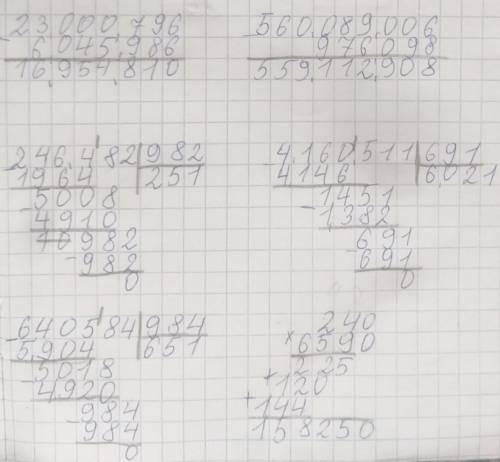 23000.796
- 6045.986
16.954.810
-560.089.006
976098
559.112.908
-246.482|982
1964 251
-5008
4910
10982
-982
0
-4.160.511|691
4146 6.021
-1451
1.382
691
-691
0
-640584|984
5.904 651
-5018
4.920
984
-984
0
240
×6590
225
+120
+144
158250